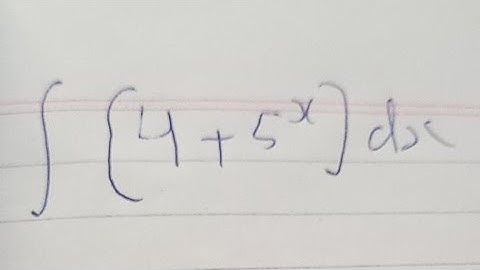 ∫ [4 + 5^x] dx